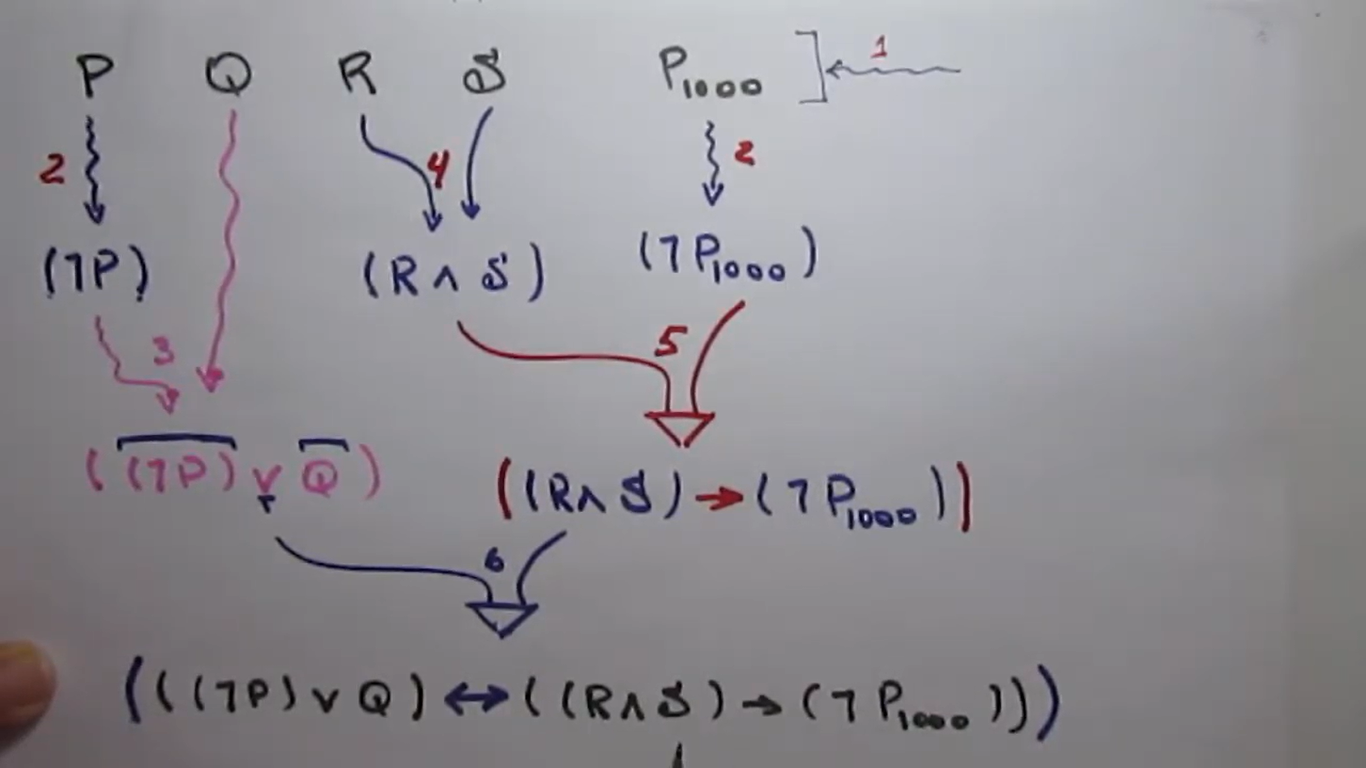 P Q R S P₁₀₀₀ ] 1
2 4 2
(¬P) (R ∧ S) (¬P₁₀₀₀)
3 5
((¬P) ∨ Q) ((R ∧ S) → (¬P₁₀₀₀))
6
(((¬P) ∨ Q) ↔ ((R ∧ S) → (¬P₁₀₀₀)))